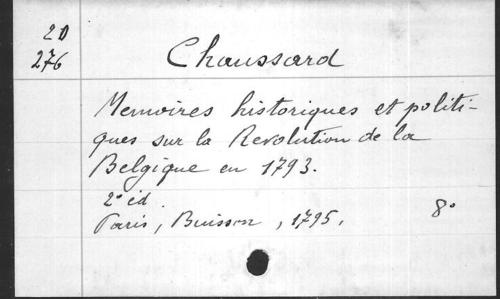 20
276
Chaussard
Memoires historiques et politi-
ques sur la Revolution de la
Belgique en 1793.
2e éd.
Paris, Buisson, 1795. 8°